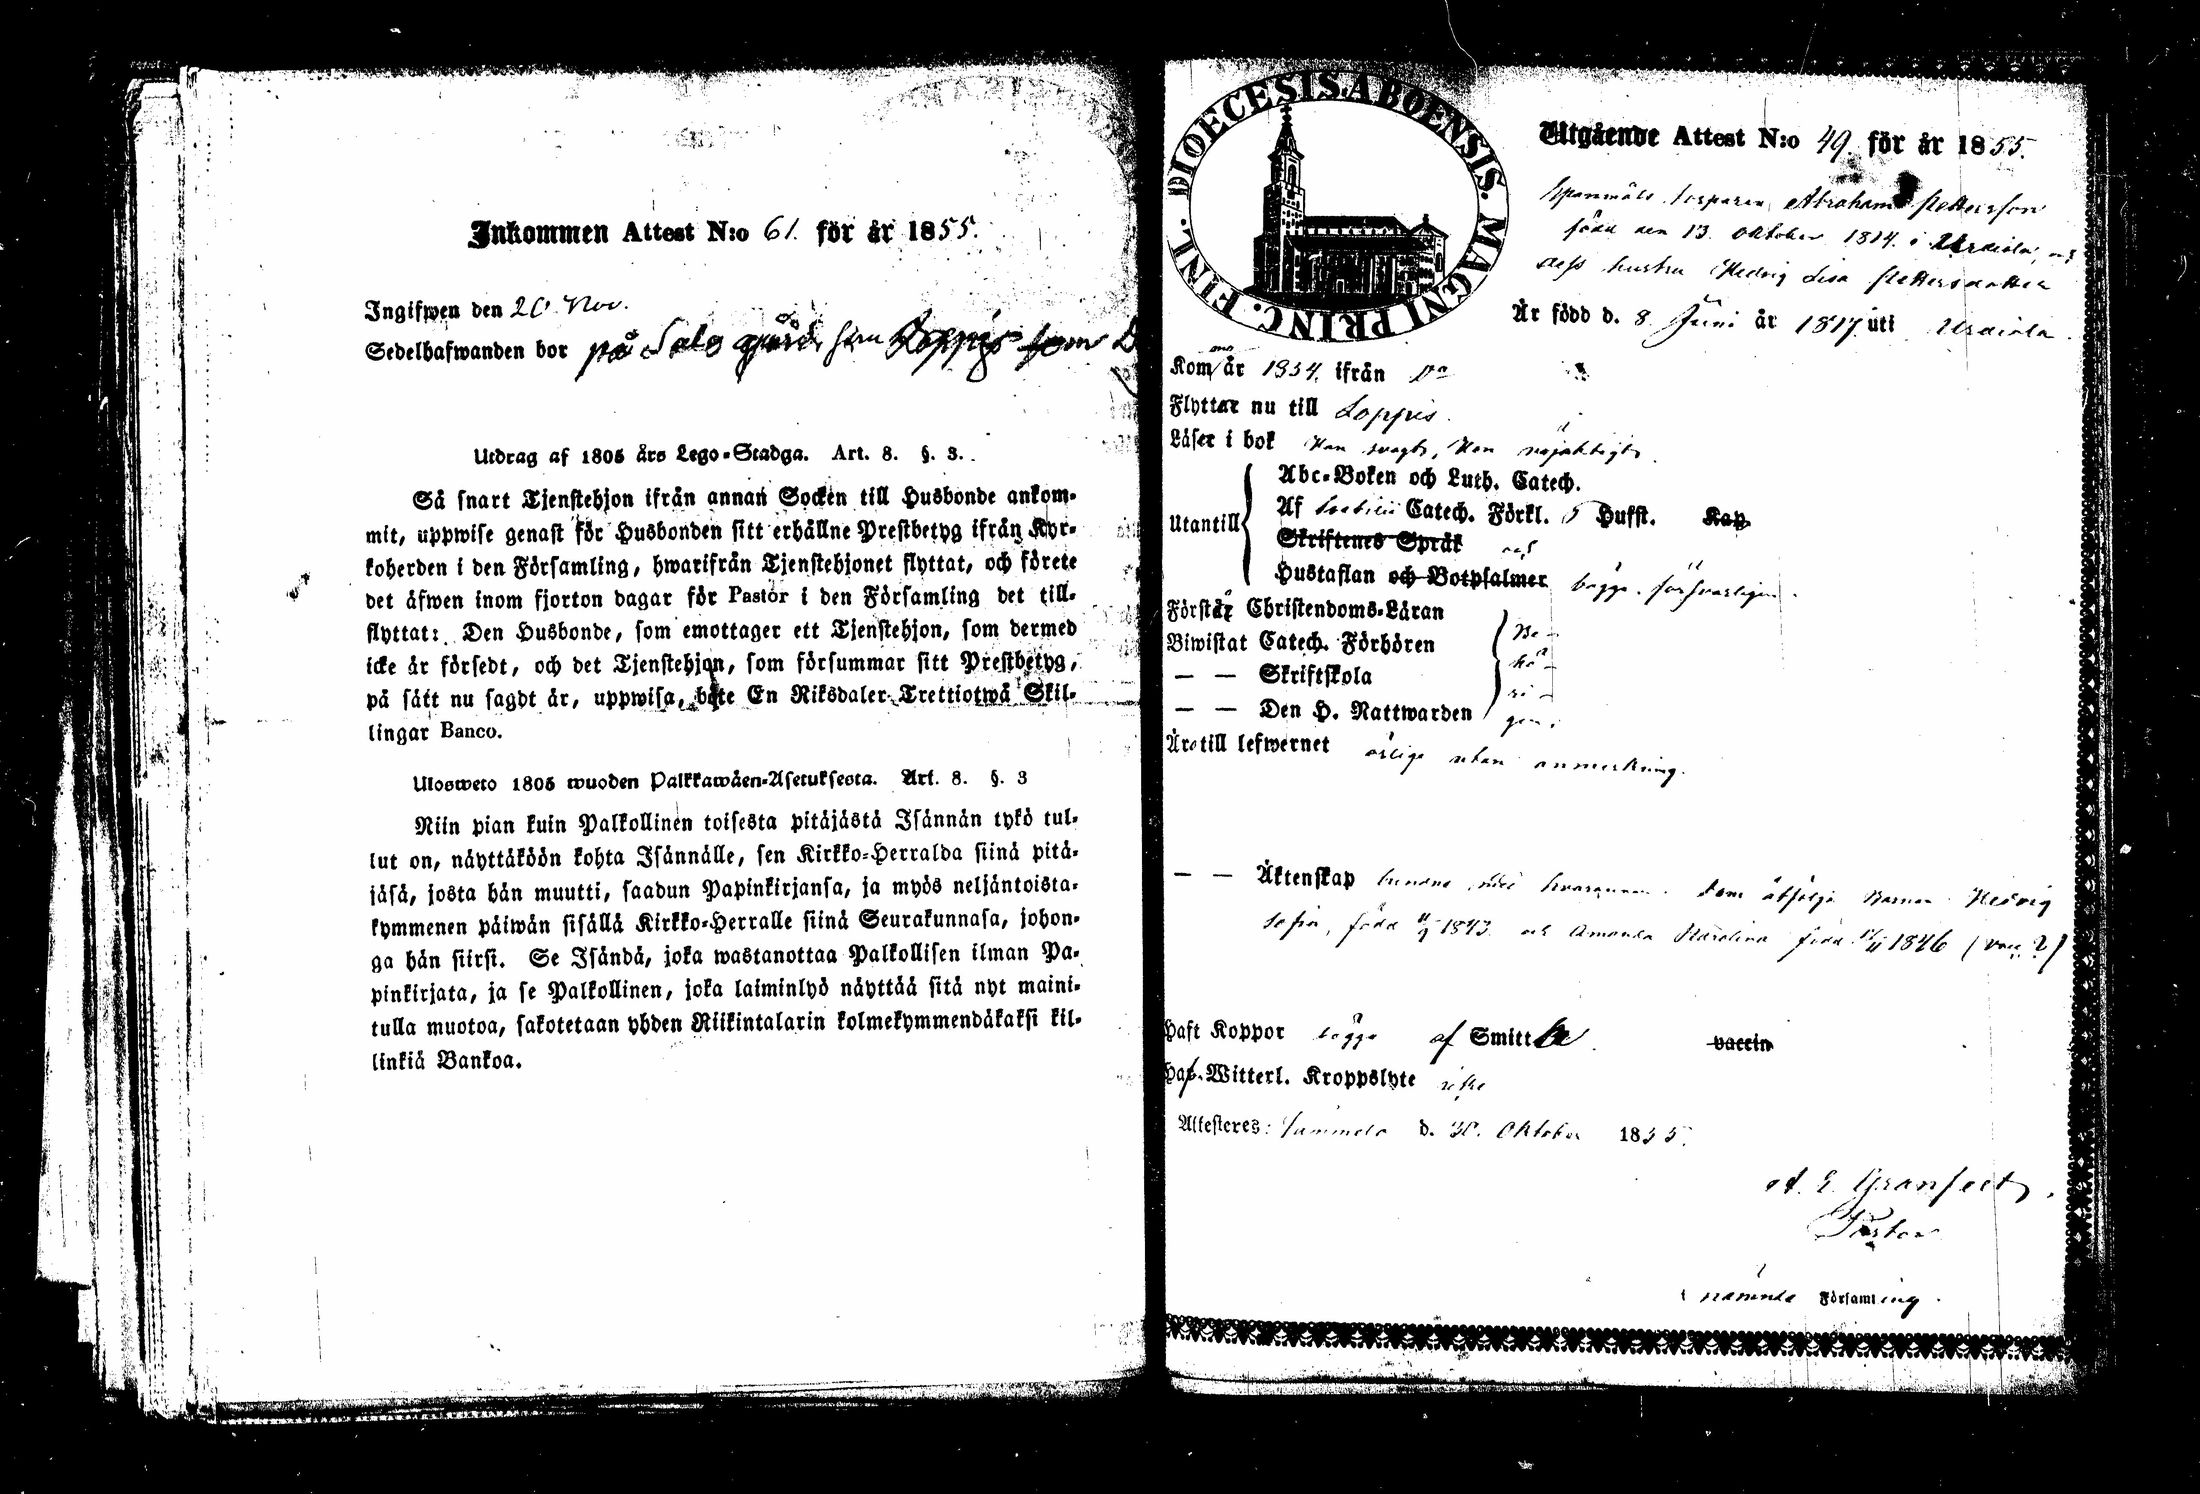 Inkommen Attest N:o 61. för år 1855.
Ingifwen den 20 Nov.
Sedelhafwanden bor på Salo gård
Utdrag af 1805 års Lego-Stadga. Art. 8. §. 3.
Så snart Tjenstehjon ifrån annan Socken till Husbonde ankom-
mit, uppwise genast för Husbonden sitt erhållne Prestbetyg ifrån Kyr-
koherden i den Församling, hwarifrån Tjenstehjonet flyttat, och förete
det äfwen inom fjorton dagar för Pastor i den Församling det till-
flyttat: Den Husbonde, som emottager ett Tjenstehjon, som dermed
icke är försedt, och det Tjenstehjon, som försummar sitt Prestbetyg,
på sätt nu sagdt är, uppwisa, böte En Riksdaler Trettiotwå Skil-
lingar Banco.
Ulosweto 1805 wuoden Palkkawäen-Asetuksesta. Art. 8. §. 3
Niin pian kuin Palkollinen toisesta pitäjästä Isännän tykö tul-
lut on, näyttäköön kohta Isännälle, sen Kirkko-Herralda siinä pitä-
jäsä, josta hän muutti, saadun Papinkirjansa, ja myös neljäntoista-
kymmenen päiwän sisällä Kirkko-Herralle siinä Seurakunnasa, johon-
ga hän siirsi. Se Isändä, joka wastanottaa Palkollisen ilman Pa-
pinkirjata, ja se Palkollinen, joka laiminlyö näyttää sitä nyt maini-
tulla muotoa, sakotetaan yhden Riikintalarin kolmekymmendäkaksi kil-
linkiä Bankoa.
DIOECESIS. ABOENSIS. MAGNI PRINC. FINL.
Utgående Attest N:o 49. för år 1855.
Spanmåls torparen Abraham Pettersson
född den 13. Oktober 1814. i Urdiala,
dess hustru Hedvig Lisa Pettersdotter
Är född d. 8 Juni år 1817. uti Urdiala.
Kom år 1854. ifrån Do
Flyttar nu till Loppis.
Läser i bok Han svagt, Hon
Utantill
Abc-Boken och Luth. Catech.
Af Catech. Förkl. 5 Hufst. Kap.
Skriftenes Språk och
Hustaflan och Botpsalmer begge försvarligen.
Förstår Christendoms-Läran
Biwistat Catech. Förhören
— — Skriftskola
— — Den H. Nattwarden
Be-
hö-
ri-
gen.
Är till lefwernet ärliga utan anmerkning.
— — Äktenskap bundne med hvarannan. Dem åtfölja Barnen Hedvig
Sofia, född 1843. och Amanda Karolina född 1846 (vac. 2)
Haft Koppor begge af Smitt vaccin
Haf. Witterl. Kroppslyte icke
Attesteres: Tammela d. 30. Oktober 1855.
A. E. Granfelt,
Pastor
i nämnda Församling.